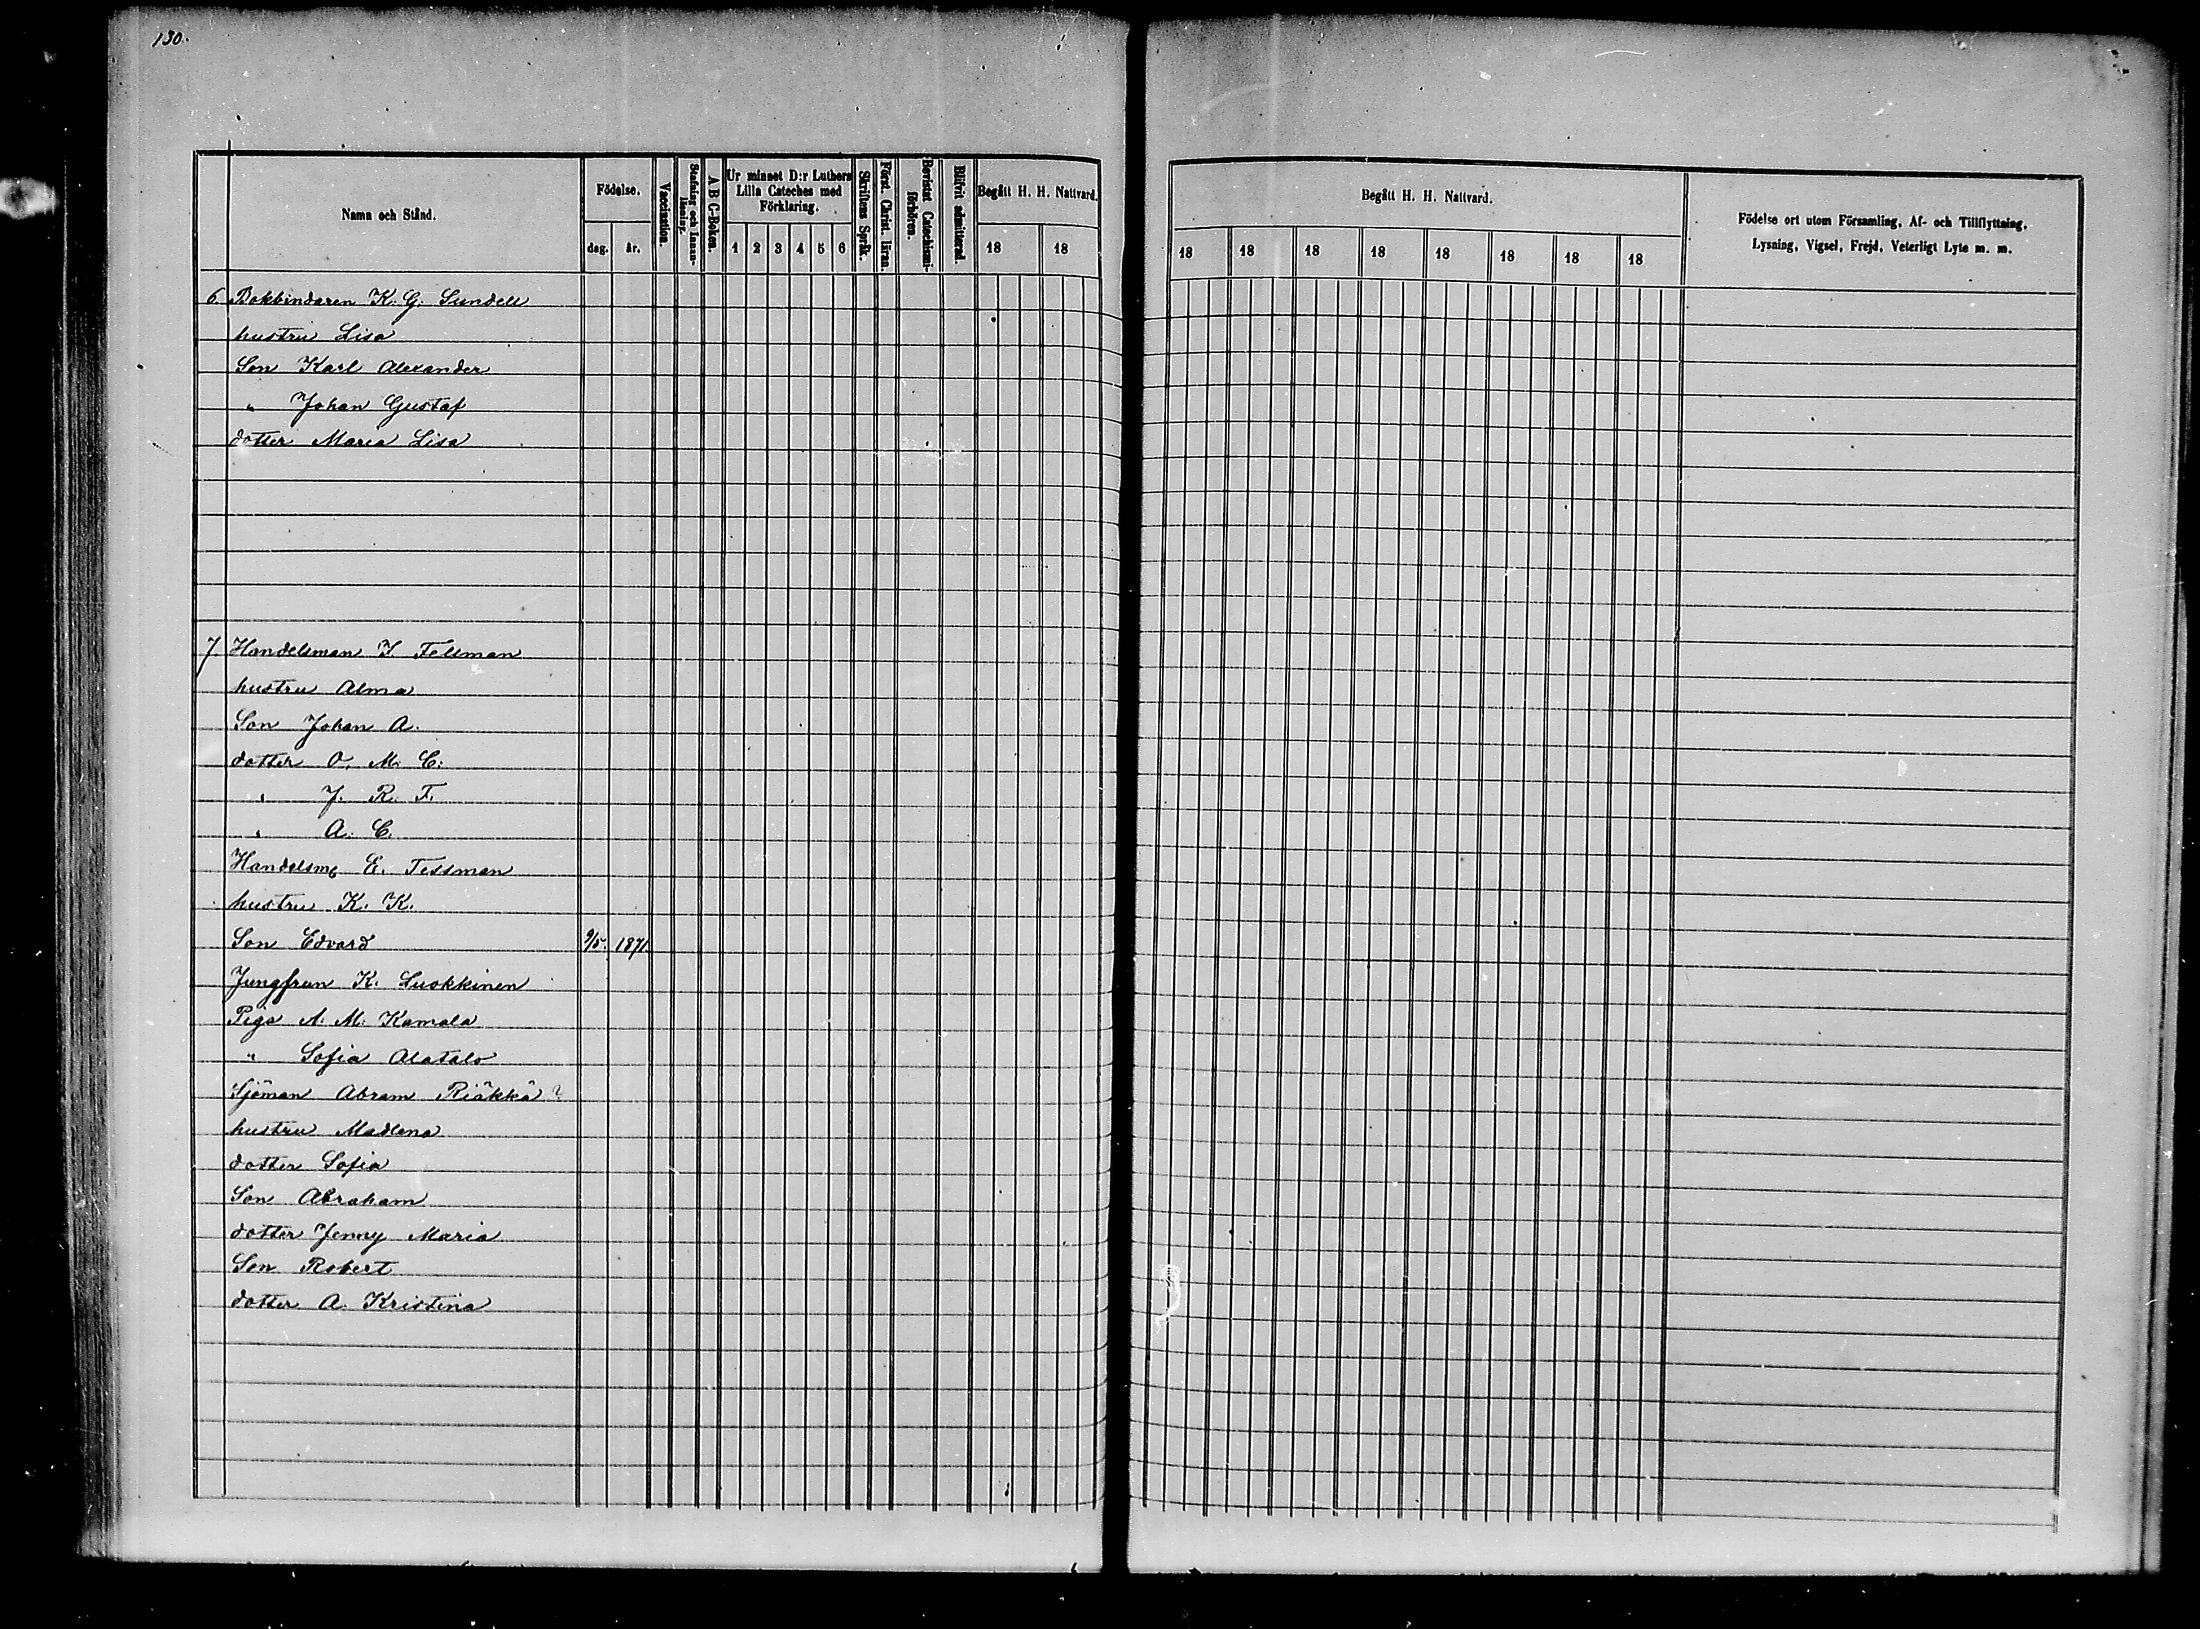 130.
Namn och Stånd.
Födelse.
dag.
år.
Vaccination.
Stafning och Innan-läsning.
A B C-Boken.
Ur minnet D:r Luthers
Lilla Cateches med
Förklaring.
1 2 3 4 5 6
Skriftens Språk.
Först. Christ. läran.
Bevistat Catechismi-förhören.
Blifvit admitterad.
Begått H. H. Nattvard.
18 18
Begått H. H. Nattvard.
18 18 18 18 18 18 18 18
Födelse ort utom Församling, Af- och Tillflyttning,
Lysning, Vigsel, Frejd, Veterligt Lyte m. m.
6. Bokbindaren K. G. Sundell
hustru Lisa
Son Karl Alexander
" Johan Gustaf
dotter Maria Lisa
7. Handelsman I. Fellman
hustru Alma
Son Johan A.
dotter O. M. C.
" J. R. F.
" A. C.
Handelsm E. Tessman
hustru K. K.
Son Edvard 9/5. 1871.
Jungfrun K. Luokkinen
Piga A. M. Kamala
" Sofia Alatalo
Sjöman Abram Riäkkä ?
hustru Madlena
dotter Sofia
Son Abraham
dotter Jenny Maria
Son Robert
dotter A. Kristina